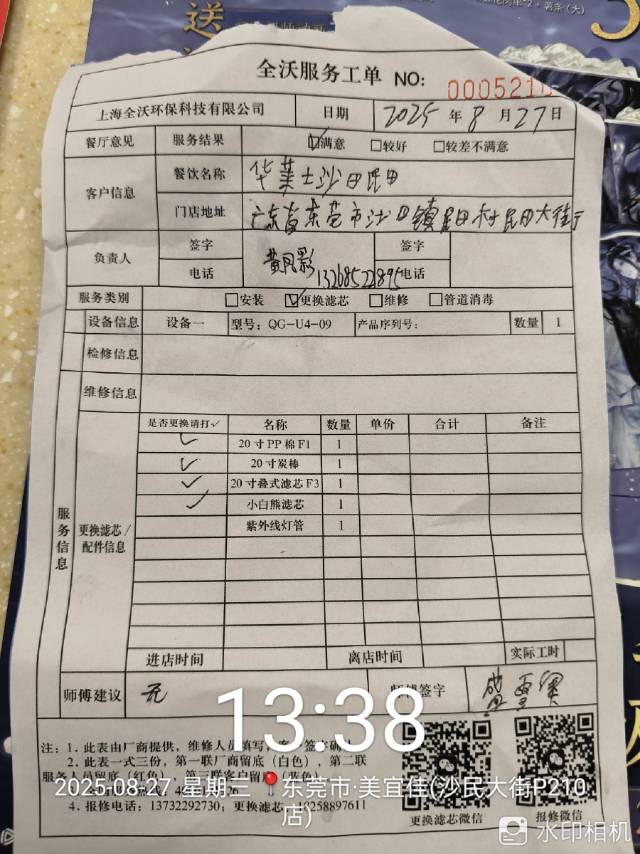 送
全沃服务工单 NO: 000521
上海全沃环保科技有限公司 日期 2025 年 8 月 27 日
餐厅意见 服务结果 ☑满意 □较好 □较差不满意
客户信息 餐饮名称 华莱士沙田民田
门店地址 广东省东莞市沙田镇民田村民田大街
负责人 签字 黄凤影 签字
电话 13268522895 电话
服务类别 □安装 ☑更换滤芯 □维修 □管道消毒
设备信息 设备一 型号: QG-U4-09 产品序列号: 数量 1
检修信息
维修信息
服务信息 更换滤芯/配件信息
是否更换请打✓ 名称 数量 单价 合计 备注
✓ 20寸PP棉F1 1
✓ 20寸炭棒 1
✓ 20寸叠式滤芯F3 1
✓ 小白熊滤芯 1
紫外线灯管 1
进店时间 离店时间 实际工时
师傅建议 无 师傅签字
13:38
注: 1. 此表由厂商提供, 维修人员填写, 签字确
2. 此表一式三份, 第一联厂商留底(白色), 第二联
服务人员留底(红色), 第三联客户留底(蓝色)
2025-08-27 星期三 东莞市·美宜佳(沙民大街P210店)
4. 报修电话: 13732292730, 更换滤芯: 18258897611
更换滤芯微信 报修微信
水印相机